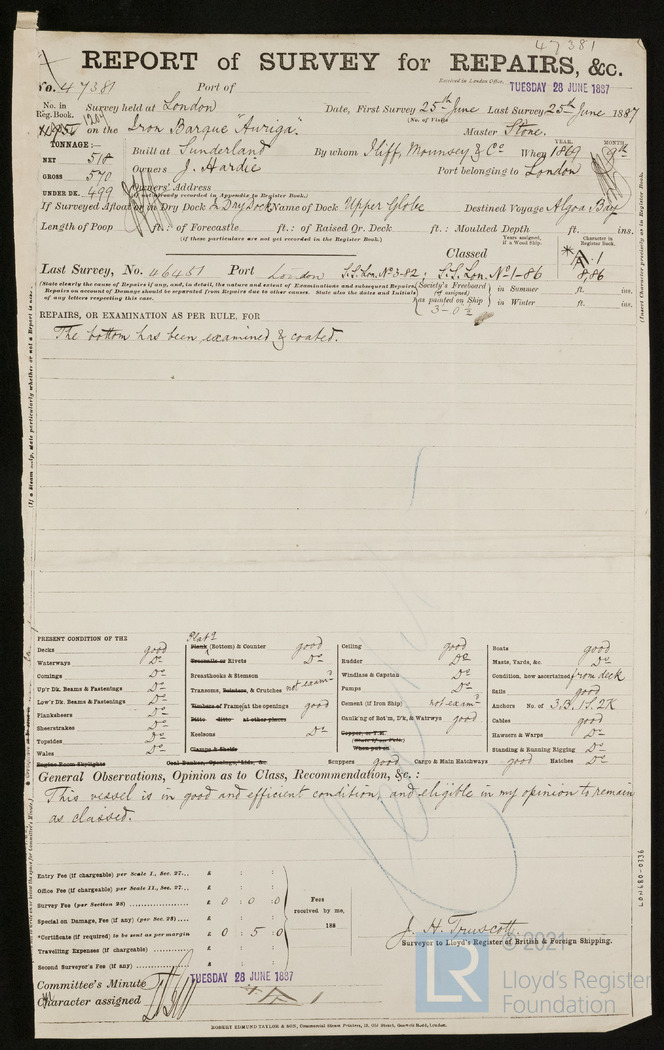 47381
REPORT of SURVEY for REPAIRS, &c.
Received in London Office, TUESDAY 28 JUNE 1887
No. 47381 Port of
No. in Reg. Book. Survey held at London Date, First Survey 25th June Last Survey 25th June 1887
(No. of Visits
1207 on the Iron Barque "Auriga". Master Stone.
TONNAGE:—
NET 518
GROSS 570
UNDER DK. 499
Built at Sunderland By whom Iliff, Mounsey & Co When 1869 9th
YEAR. MONTH.
Owners J. Hardie Port belonging to London
Owners' Address
(If not already recorded in Appendix to Register Book.)
If Surveyed Afloat or in Dry Dock & Dry Dock Name of Dock Upper Globe Destined Voyage Algoa Bay
Length of Poop ft.: of Forecastle ft.: of Raised Qr. Deck ft.: Moulded Depth ft. ins.
(If these particulars are not yet recorded in the Register Book.)
Years assigned, if a Wood Ship.
Character in Register Book.
Classed
A.1
8,86
Last Survey, No. 46451 Port London S.S. Lon. No 3-82; S.S. Lon. No 1-86
(State clearly the cause of Repairs if any, and, in detail, the nature and extent of Examinations and subsequent Repairs.
Repairs on account of Damage should be separated from Repairs due to other causes. State also the dates and Initials
of any letters respecting this case.
Society's Freeboard (if assigned) as painted on Ship
in Summer ft. ins.
in Winter ft. ins.
3-0½
REPAIRS, OR EXAMINATION AS PER RULE, FOR
The bottom has been examined & coated.
PRESENT CONDITION OF THE
Decks good
Waterways Do
Comings Do
Up'r Dk. Beams & Fastenings Do
Low'r Dk. Beams & Fastenings Do
Planksheers Do
Sheerstrakes Do
Topsides Do
Wales Do
Engine Room Skylights
Plank (Bottom) & Counter good
Treenails or Rivets Do
Breasthooks & Stemson
Transoms, Pointers, & Crutches not examd
Timbers of Frame at the openings good
Ditto ditto at other places
Keelsons Do
Clamps & Shelfs
Coal Bunker, Openings, Lids, &c.
Ceiling good
Rudder Do
Windlass & Capstan Do
Pumps Do
Cement (if Iron Ship) not examd
Caulk'ng of Bot'm, D'k, & Watrwys good
Copper, or Y.M.
When put on
Scuppers good Cargo & Main Hatchways good Hatches Do
Boats good
Masts, Yards, &c. Do
Condition, how ascertained from deck
Sails good
Anchors No. of 3.B, 1S. 2K
Cables good
Hawsers & Warps Do
Standing & Running Rigging Do
General Observations, Opinion as to Class, Recommendation, &c.:
This vessel is in good and efficient condition, and eligible in my opinion to remain
as classed.
Entry Fee (if chargeable) per Scale I., Sec. 27... £ : :
Office Fee (if chargeable) per Scale II., Sec. 27... £ : :
Survey Fee (per Section 28) £ 0 : 0 : 0
Special on Damage, Fee (if any) (per Sec. 28).... £ : :
*Certificate (if required) to be sent as per margin £ 0 : 5 : 0
Travelling Expenses (if chargeable) £ : :
Second Surveyor's Fee (if any) £ : :
Fees received by me, 188
J. H. Truscott.
Surveyor to Lloyd's Register of British & Foreign Shipping.
Committee's Minute TUESDAY 28 JUNE 1887
Character assigned A 1
ROBERT EDMUND TAYLOR & SON, Commercial Steam Printers, 19, Old Street, Goswell Road, London.
LON680-0136
© 2021
LR
Lloyd's Register
Foundation